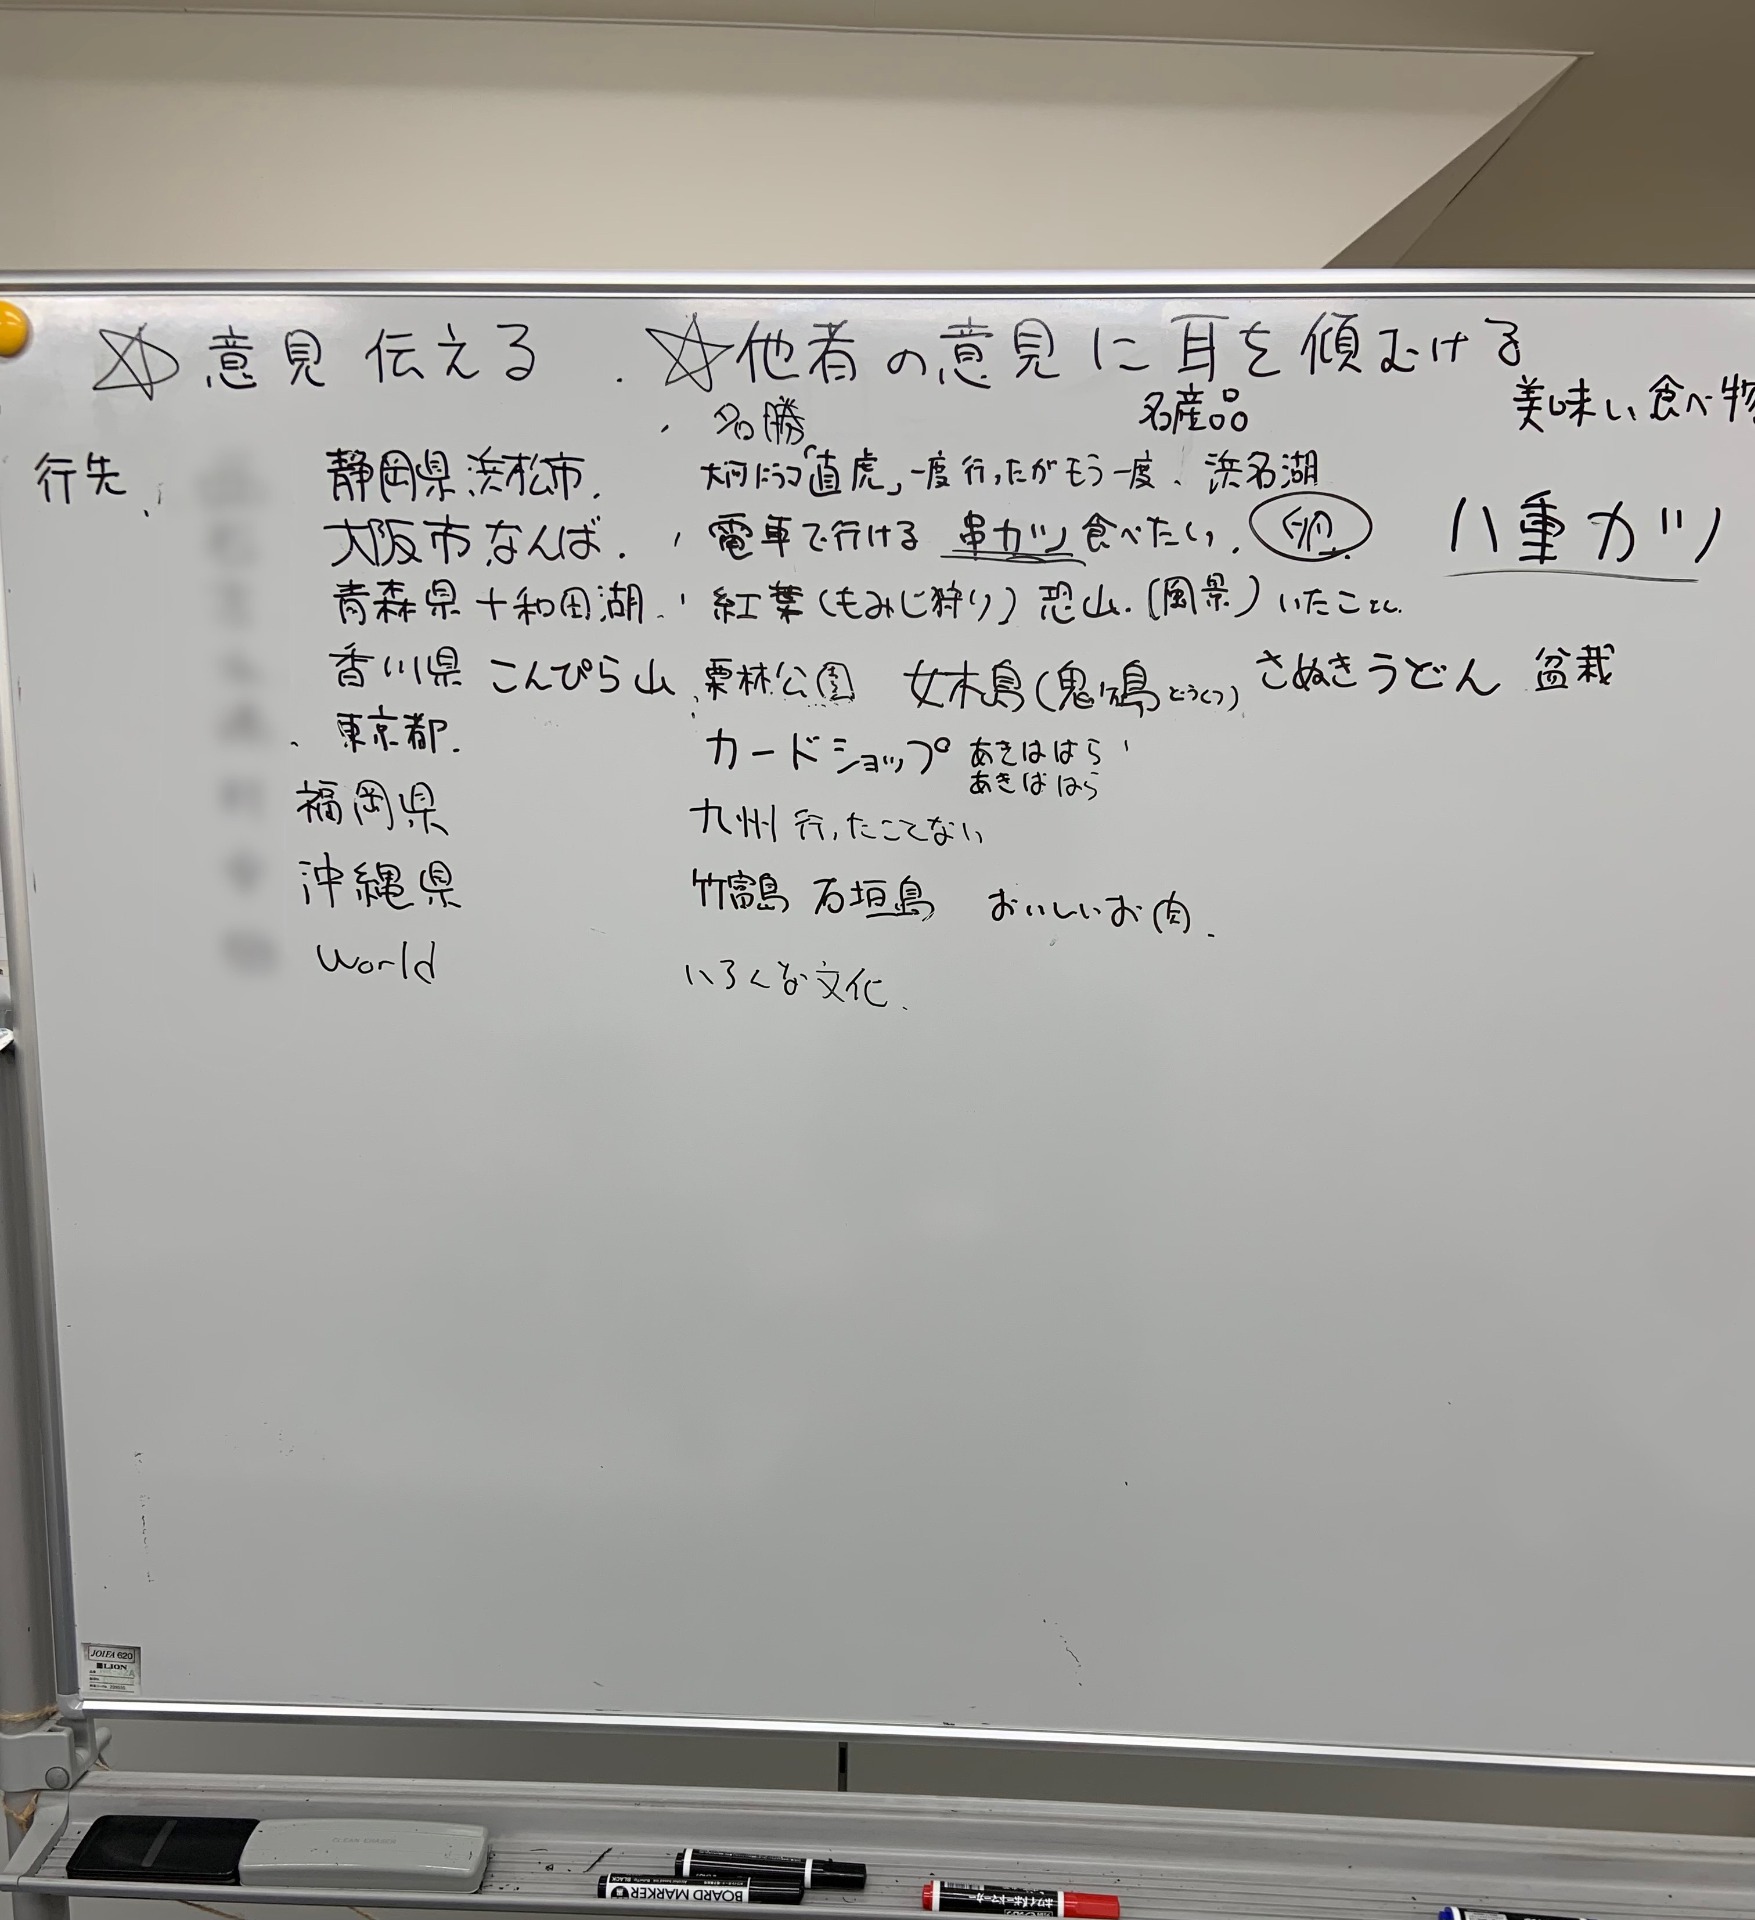 ☆意見 伝える . ☆他者の意見に耳を傾むける
. 名勝 名産品 美味しい食べ物
行先、 静岡県浜松市. 大河ドラマ「直虎」一度行ったがもう一度、浜名湖
大阪市なんば. 電車で行ける 串カツ食べたい. 八重カツ
青森県十和田湖. 紅葉(もみじ狩り)恐山.(風景)いたこさん.
香川県 こんぴら山、栗林公園 女木島(鬼ヶ島どうくつ) さぬきうどん 盆栽
、東京都. カードショップ あきははら
あきばはら
福岡県 九州 行ったことない
沖縄県 竹富島 石垣島 おいしいお肉.
world いろくな文化.
JOIFA 620
LION
CLEAN ERASER
BOARD MARKER BLACK
ホワイトボードマーカー